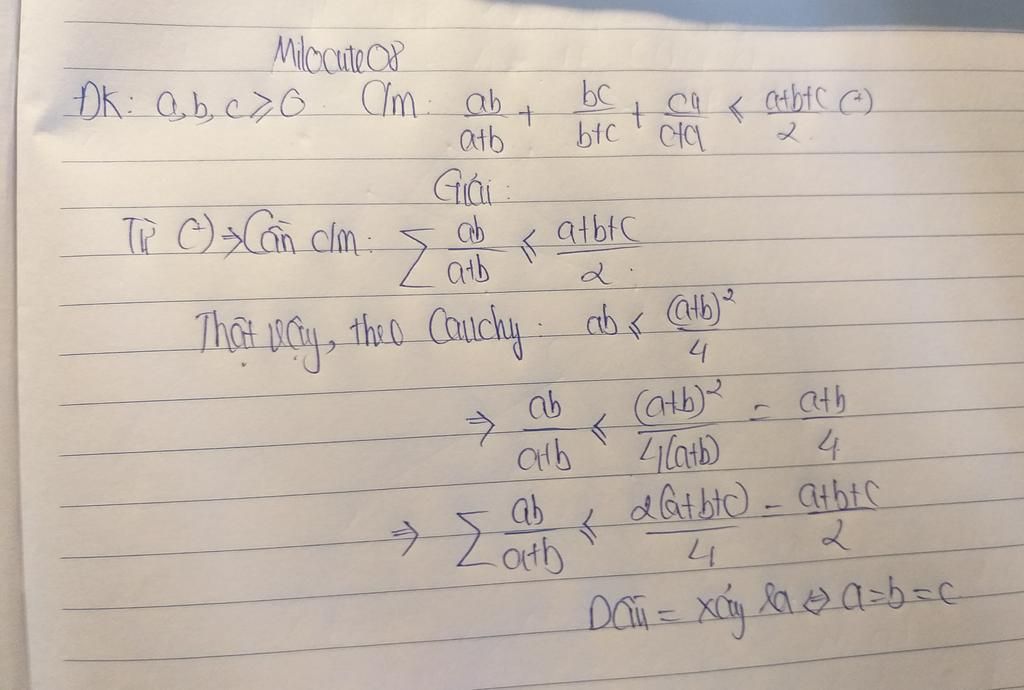 Milocute08
ĐK: a,b,c ⩾ 0. C/m: ab/(a+b) + bc/(b+c) + ca/(c+a) ⩽ (a+b+c)/2 (*)
Giải:
Từ (*) ⇒ Cần c/m: ∑ ab/(a+b) ⩽ (a+b+c)/2.
Thật vậy, theo Cauchy: ab ⩽ (a+b)²/4
⇒ ab/(a+b) ⩽ (a+b)²/4(a+b) = (a+b)/4
⇒ ∑ ab/(a+b) ⩽ 2(a+b+c)/4 = (a+b+c)/2
Dấu = xảy ra ⇔ a=b=c